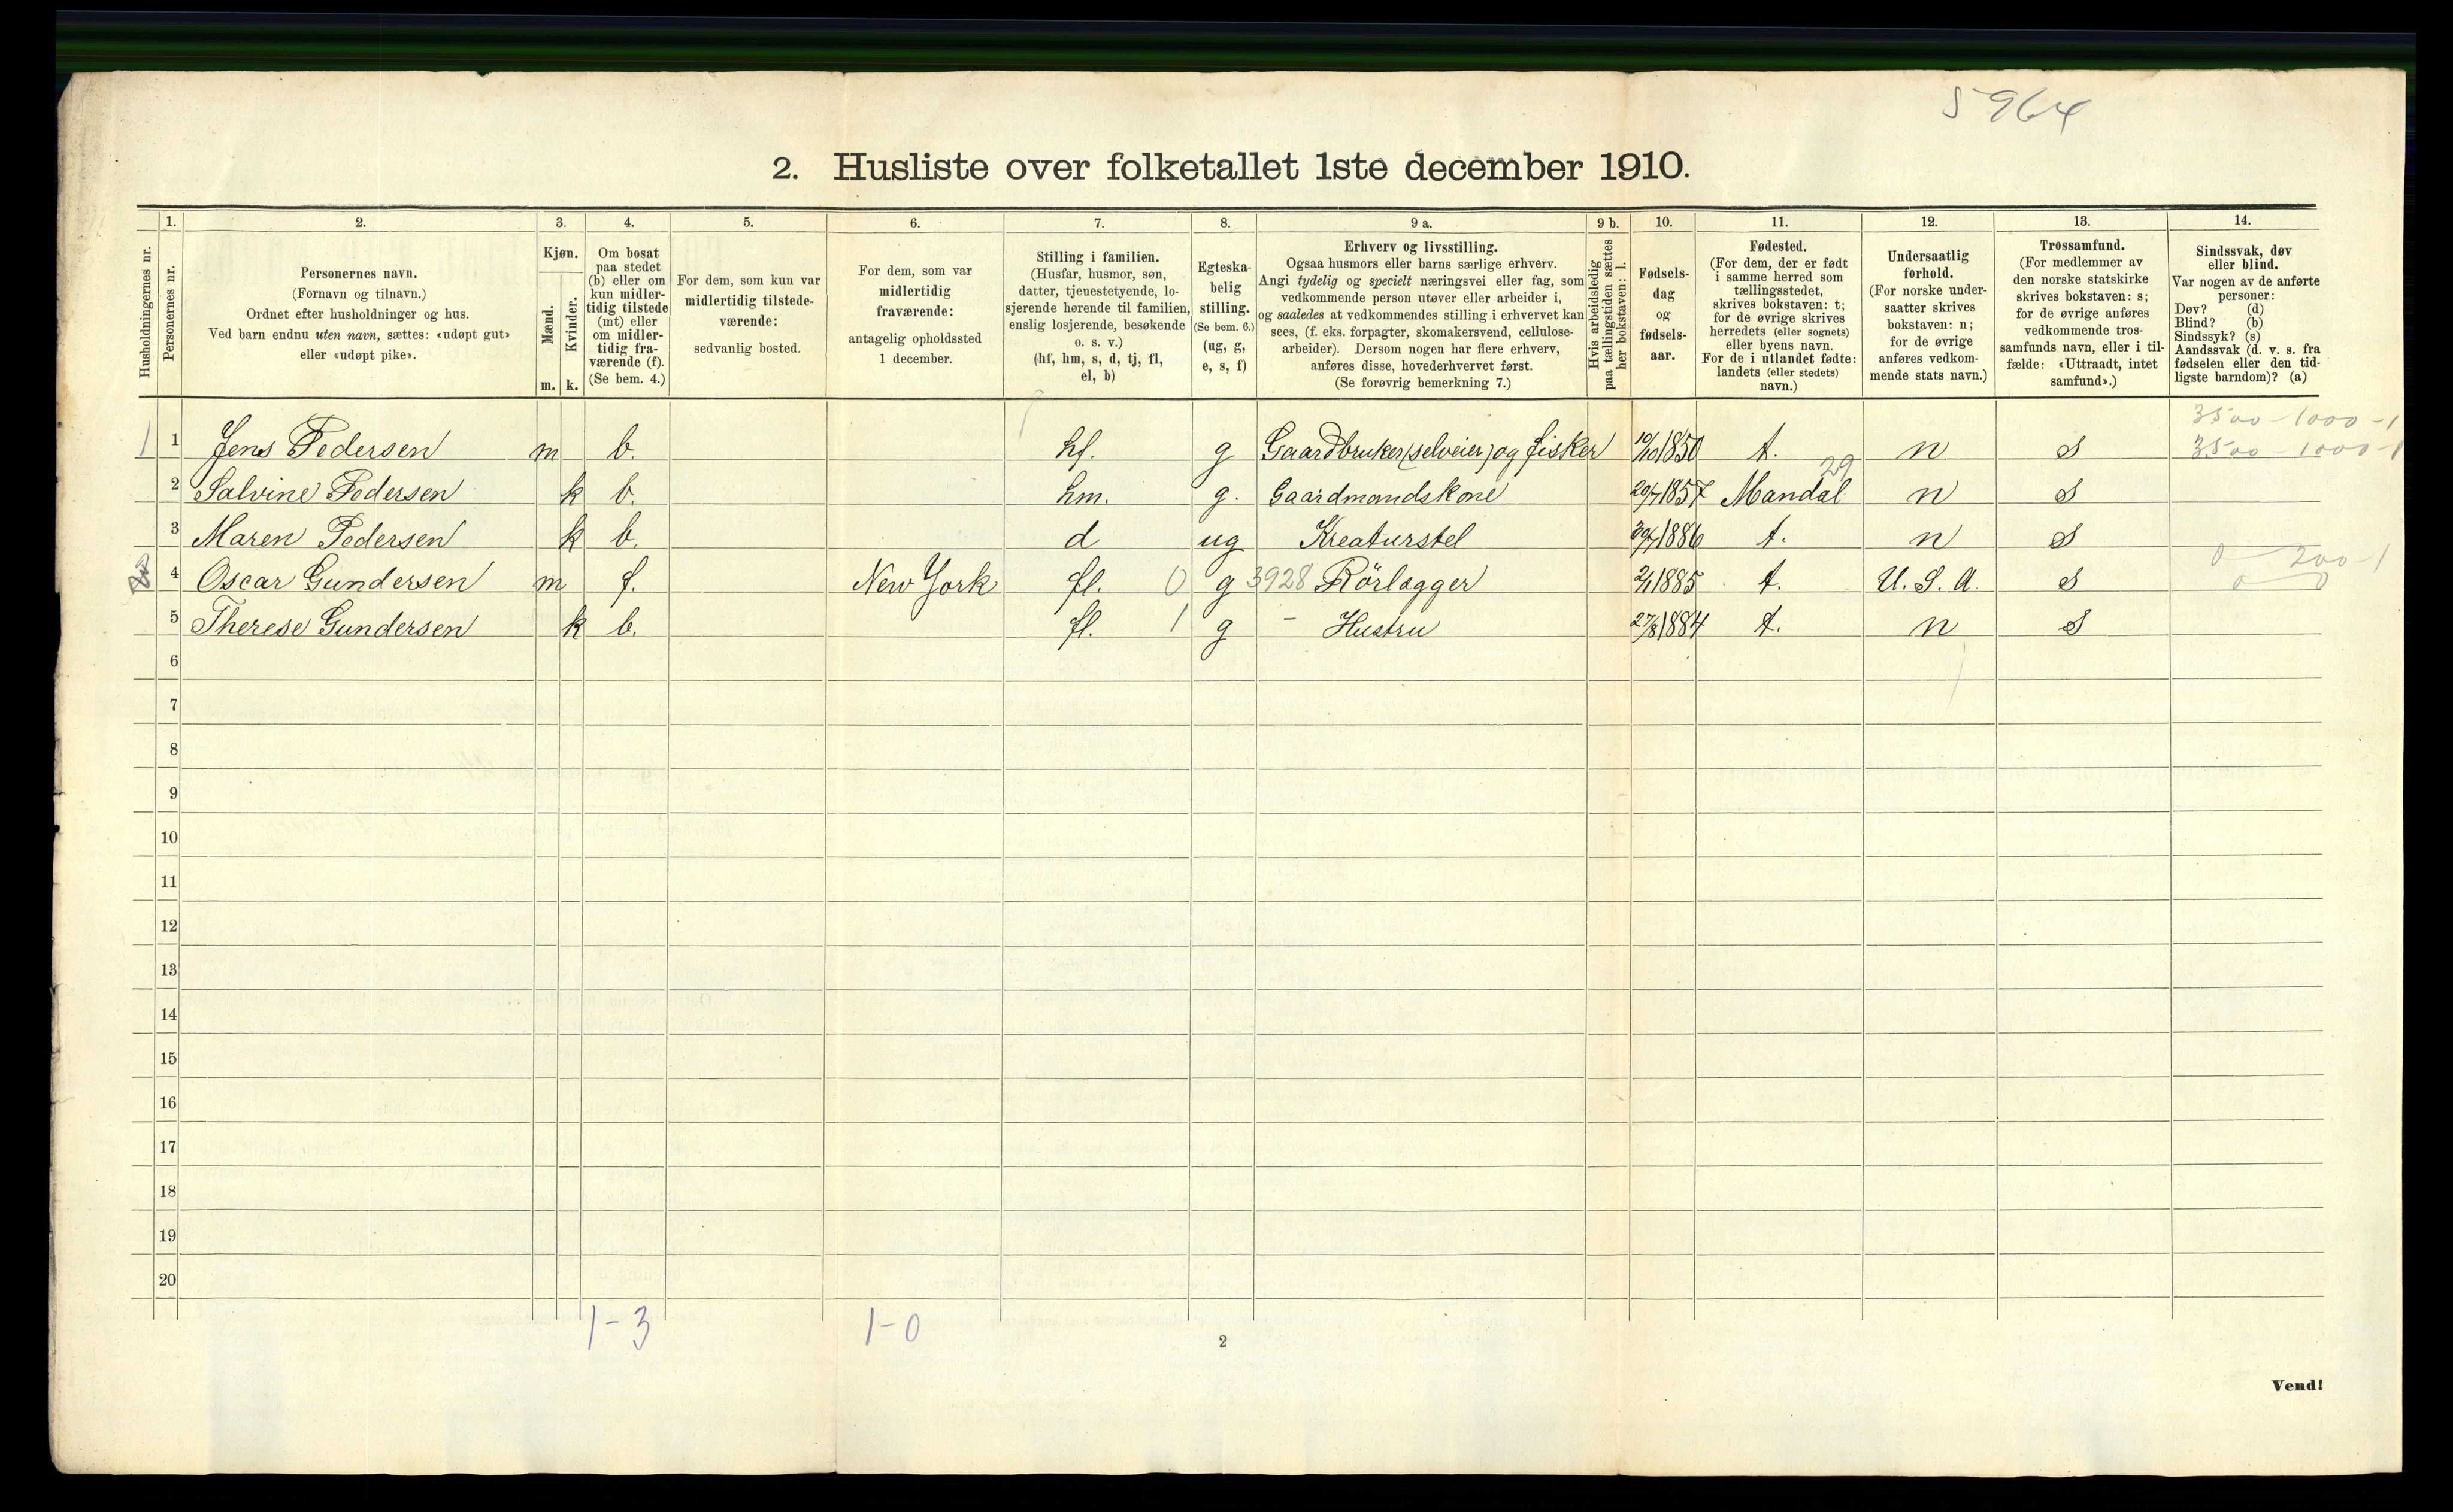 5964
2. Husliste over folketallet 1ste december 1910.
Husholdningernes nr.
1.
Personernes nr.
2.
Personernes navn.
(Fornavn og tilnavn.)
Ordnet efter husholdninger og hus.
Ved barn endnu uten navn, sættes: «udøpt gut»
eller «udøpt pike».
3.
Kjøn.
Mænd.
Kvinder.
m. k.
4.
Om bosat
paa stedet
(b) eller om
kun midler-
tidig tilstede
(mt) eller
om midler-
tidig fra-
værende (f).
(Se bem. 4.)
5.
For dem, som kun var
midlertidig tilstede-
værende:
sedvanlig bosted.
6.
For dem, som var
midlertidig
fraværende:
antagelig opholdssted
1 december.
7.
Stilling i familien.
(Husfar, husmor, søn,
datter, tjenestetyende, lo-
sjerende hørende til familien,
enslig losjerende, besøkende
o. s. v.)
(hf, hm, s, d, tj, fl,
el, b)
8.
Egteska-
belig
stilling.
(Se bem. 6.)
(ug, g,
e, s, f)
9 a.
Erhverv og livsstilling.
Ogsaa husmors eller barns særlige erhverv.
Angi tydelig og specielt næringsvei eller fag, som
vedkommende person utøver eller arbeider i,
og saaledes at vedkommendes stilling i erhvervet kan
sees, (f. eks. forpagter, skomakersvend, cellulose-
arbeider). Dersom nogen har flere erhverv,
anføres disse, hovederhvervet først.
(Se forøvrig bemerkning 7.)
9 b.
Hvis arbeidsledig
paa tællingstiden sættes
her bokstaven: l.
10.
Fødsels-
dag
og
fødsels-
aar.
11.
Fødested.
(For dem, der er født
i samme herred som
tællingsstedet,
skrives bokstaven: t;
for de øvrige skrives
herredets (eller sognets)
eller byens navn.
For de i utlandet fødte:
landets (eller stedets)
navn.)
12.
Undersaatlig
forhold.
(For norske under-
saatter skrives
bokstaven: n;
for de øvrige
anføres vedkom-
mende stats navn.)
13.
Trossamfund.
(For medlemmer av
den norske statskirke
skrives bokstaven: s;
for de øvrige anføres
vedkommende tros-
samfunds navn, eller i til-
fælde: «Uttraadt, intet
samfund».)
14.
Sindssvak, døv
eller blind.
Var nogen av de anførte
personer:
Døv? (d)
Blind? (b)
Sindssyk? (s)
Aandssvak (d. v. s. fra
fødselen eller den tid-
ligste barndom)? (a)
3500 - 1000 - 1
1 1 Jens Pedersen m b. hf. g Gaardbruker (selveier) og fisker 10/10 1850 t. n s 3500 - 1000 - 1
29
2 Salvine Pedersen k b. hm. g. Gaardmandskone 20/7 1857 Mandal n s
3 Maren Pedersen k b. d ug Kreaturstel 30/7 1886 t. n s
0 - 200 - 1
4 Oscar Gundersen m f. New York fl. 0 g 3928 Rörlægger 2/1 1885 t. U. S. A. s 0 - 0
5 Therese Gundersen k b. fl. 1 g - Hustru 27/8 1884 t. n s
6
7
8
9
10
11
12
13
14
15
16
17
18
19
20
1-3 1-0
2
Vend!